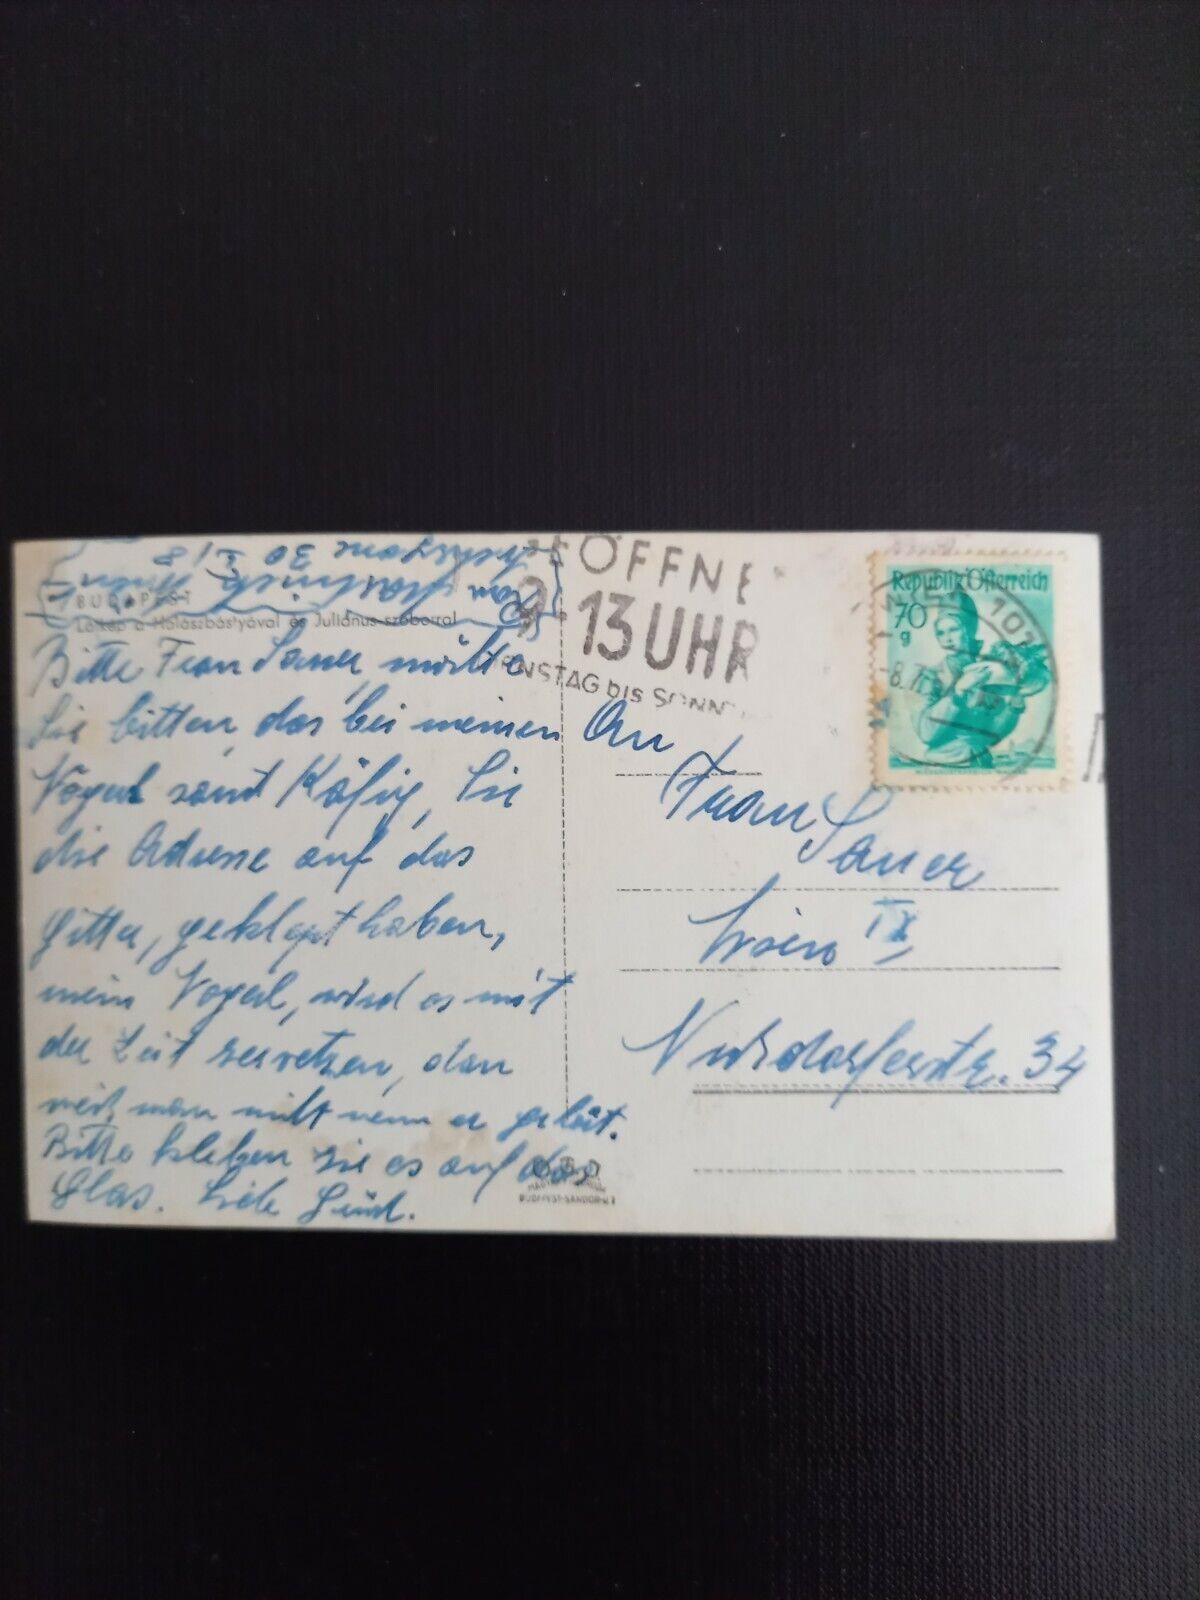 BUDAPEST
Látkép a Halászbástyával és Juliánus-szoborral
30
Bitte Frau Sauer, möchte
Sie bitten, das bei meinen
Vogerl samt Käfig, Sie
die Adresse auf das
Gitter, geklept haben,
mein Vogerl, wird es mit
der Zeit zerretzen, dan
weiß man nilt wem er gehört.
Bitte kleben sie es auf das
Glas.
ÖFFNE
13 UHR
NSTAG bis SONN
Republik Österreich
70
g
An
Frau Sauer
Wien IX
Nusdorferstr. 34
BUDAPEST